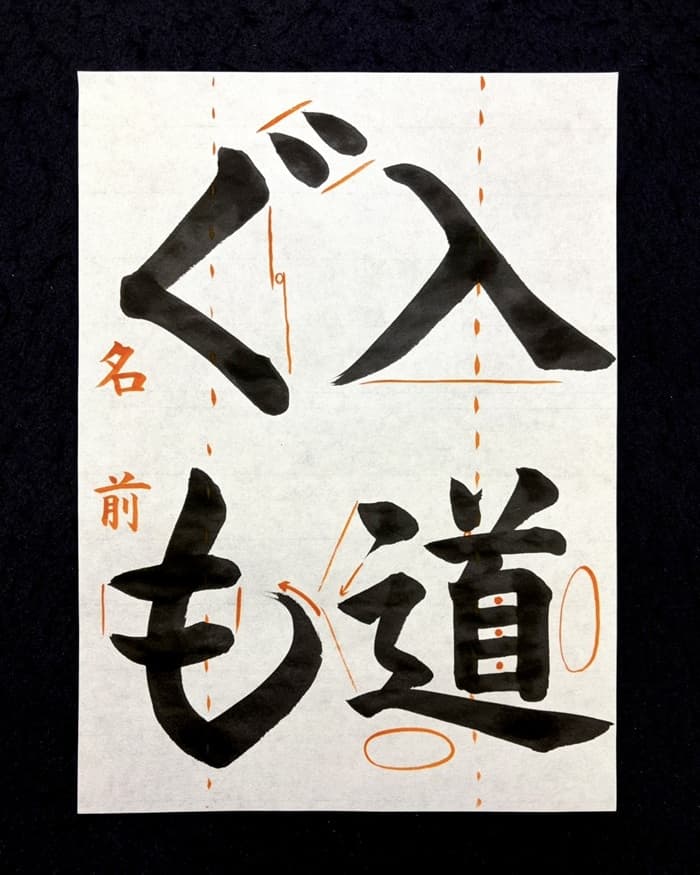 入道
ぐも
名前